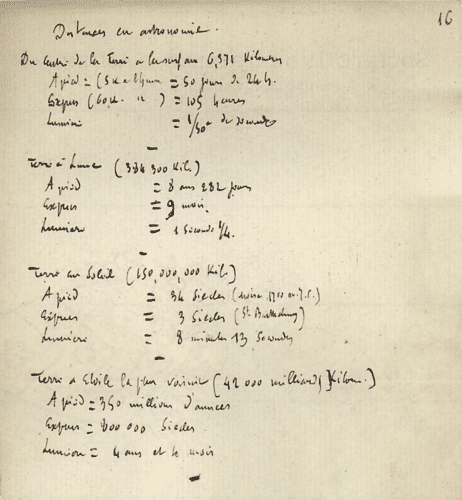 16
Distances en astronomie.
Du centre de la Terre a la surface 6,371 Kilometres
A pied = (5 K a l'heure = 50 jours de 24 h.
Expres (60 K. " ) = 105 heures
Lumiere = 1/50e de secondes
Terre à Lune (384 300 Kil.)
A pied = 8 ans 282 jours
Express = 9 mois
Lumiere = 1 seconde 1/4.
Terre au Soleil (150,000,000 Kil.)
A pied = 34 Siecles
Express = 3 Siecles (St Barthelemy)
Lumiere = 8 minutes 13 Secondes
Terre a Etoile la plus voisine (42 000 milliards Kilom.)
A pied = 350 millions d'annees
Express = 800 000 Siecles
Lumiere = 4 ans et 4 mois